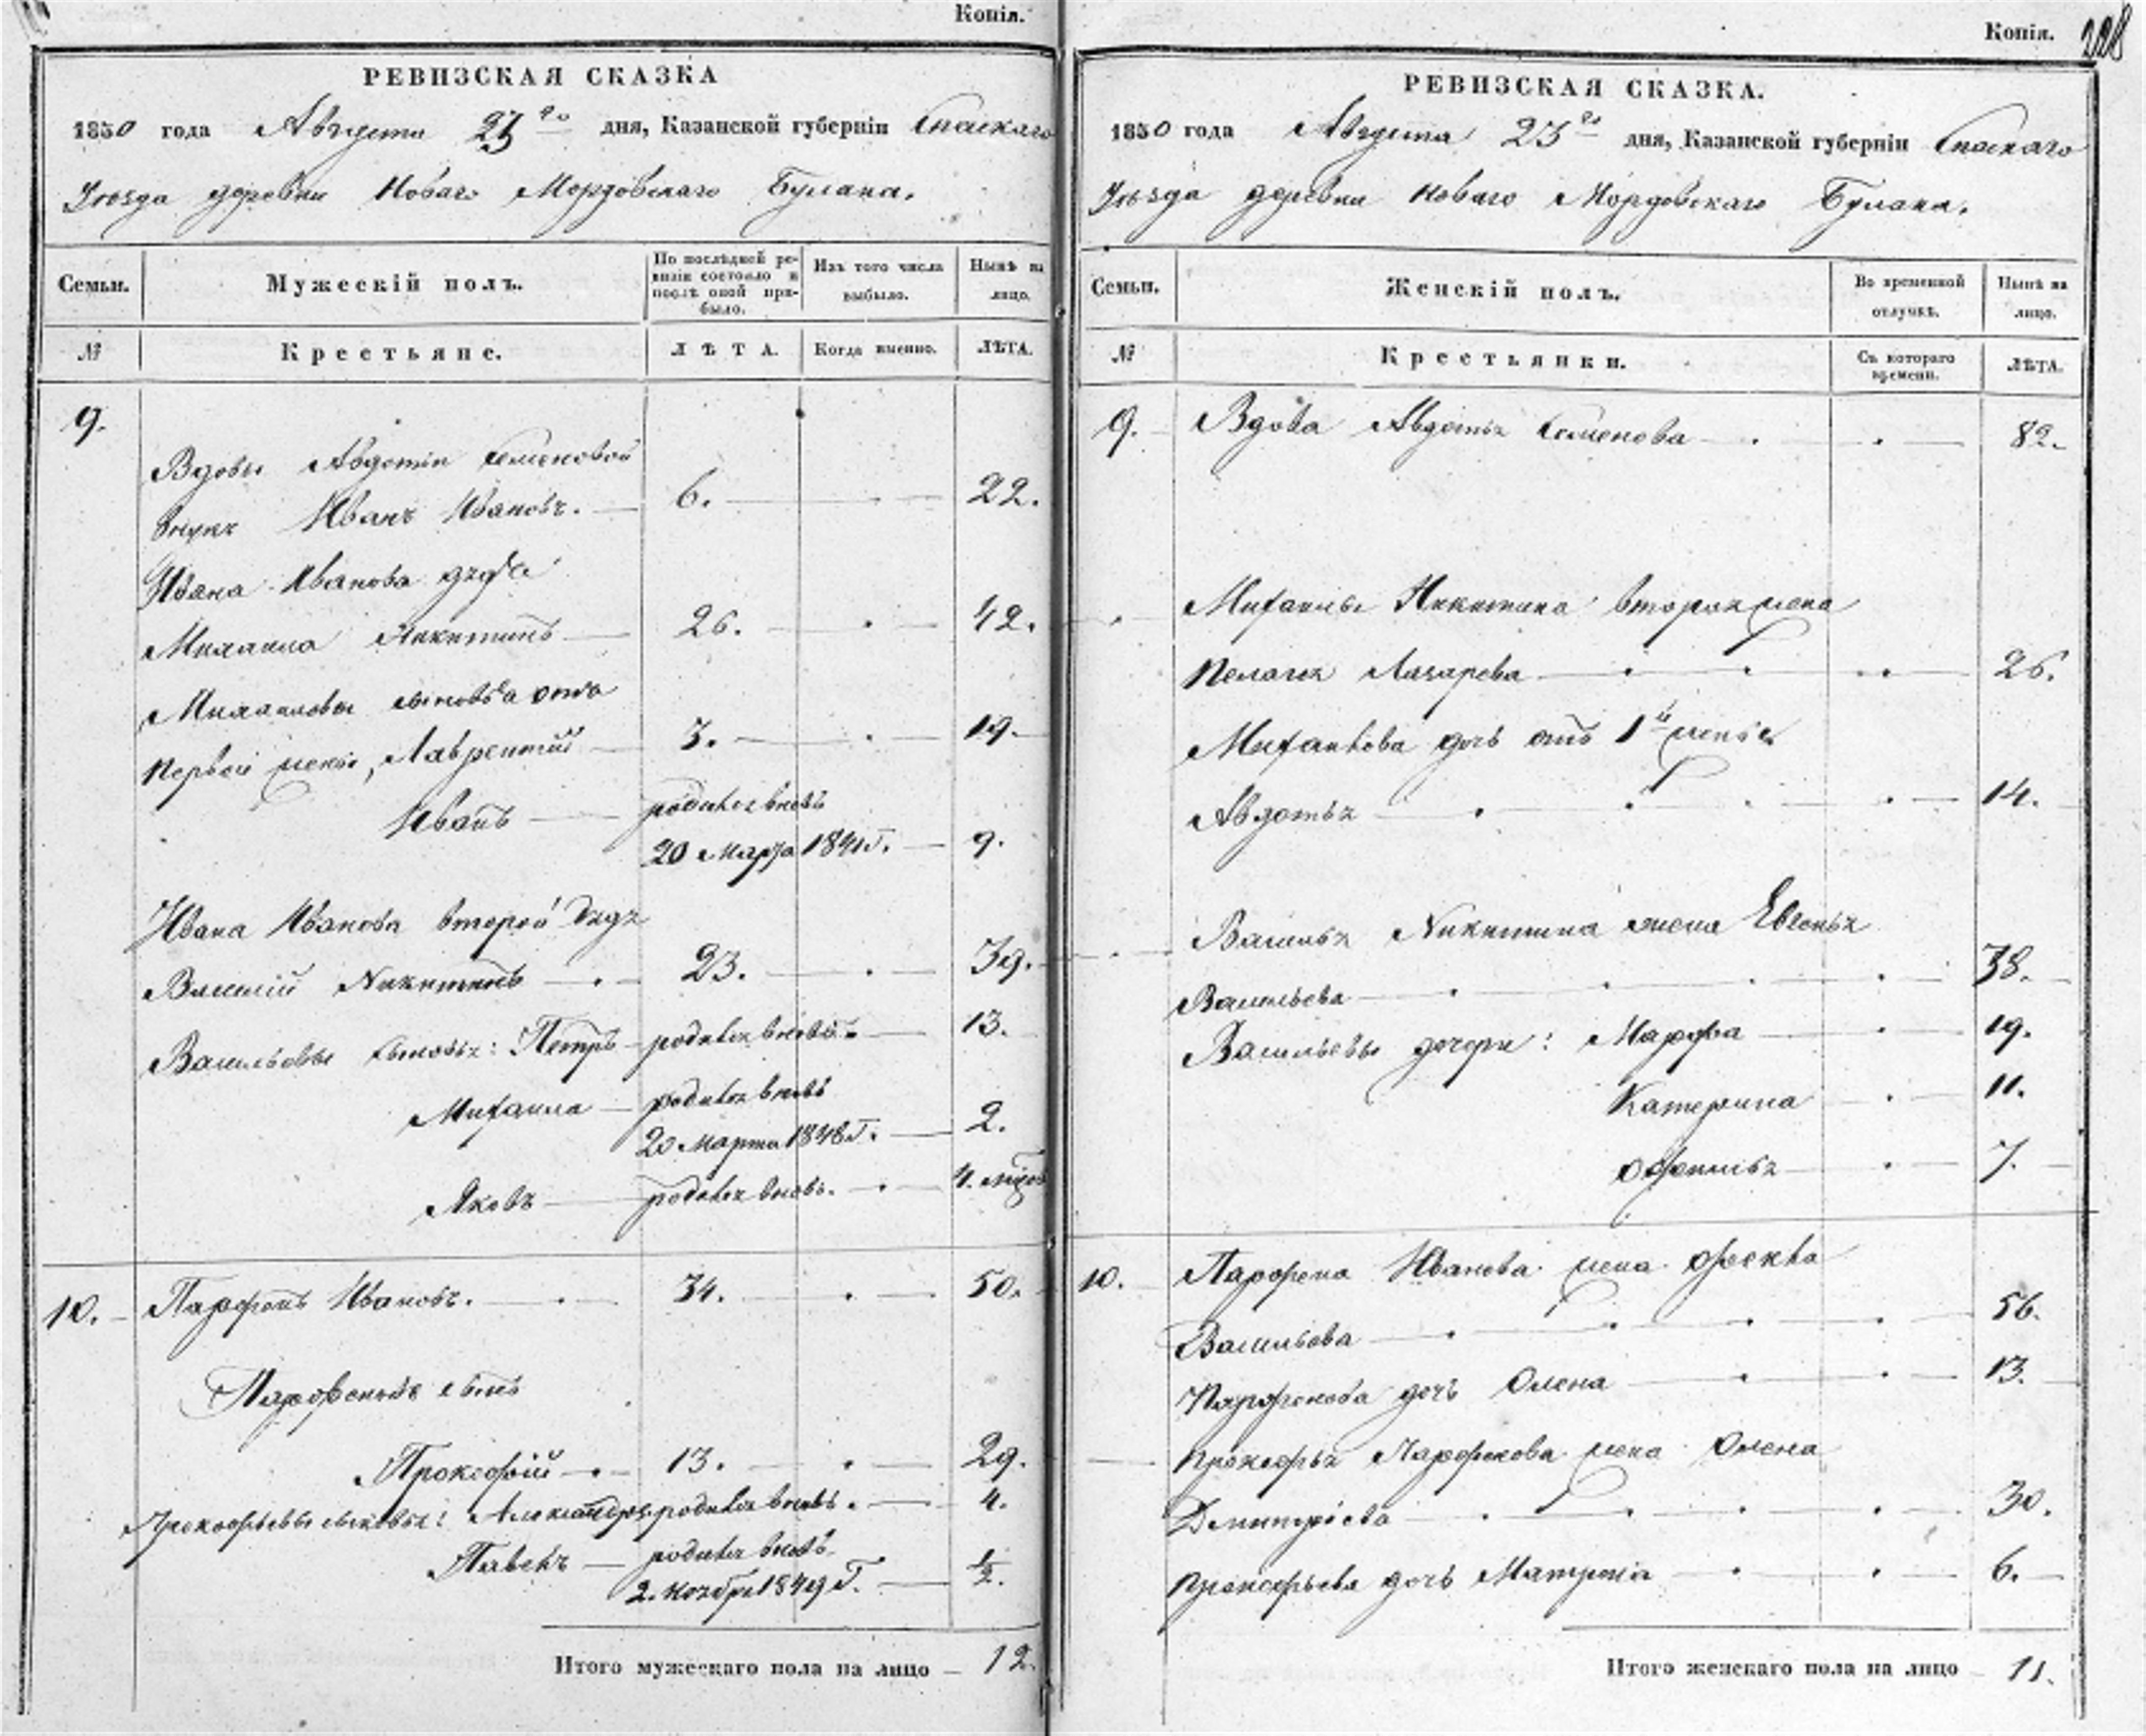 Копія.
РЕВИЗСКАЯ СКАЗКА
1850 года Августа 23го дня, Казанской губерніи Спаскаго
Уѣзда деревни Новаго Мордовскаго Булака.
Семьи. Мужескій полъ. По послѣдней ревизіи состояло и послѣ оной прибыло. Изъ того числа выбыло. Нынѣ на лицо.
№ Крестьяне. ЛѢТА. Когда именно. ЛѢТА.
9.
Вдовы Авдотьи Семеновой
внукъ Иванъ Ивановъ. 6. 22.
Ивана Иванова дядя
Михаила Никитинъ 26. 42.
Михайловы сыновья отъ
первой жены, Лаврентій 3. 19.
Иванъ родился вновь
20 Марта 1841 г. 9.
Ивана Иванова второй дядя
Василій Никитинъ 23. 39.
Васильевы сыновья: Петръ родился вновь. 13.
Михаила родился вновь
20 Марта 1848 г. 2.
Яковъ родился вновь. 4. мѣсяц
10. Парфенъ Ивановъ. 34. 50.
Парфеновъ сынъ
Прокофій 13. 29.
Прокофьевы сыновья: Александръ родился вновь. 4.
Павелъ родился вновь
2. ноября 1849 г. 1/2.
Итого мужескаго пола на лицо 12.
Копія. 228
РЕВИЗСКАЯ СКАЗКА.
1850 года Августа 23го дня, Казанской губерніи Спаскаго
Уѣзда деревни Новаго Мордовскаго Булака.
Семьи. Женскій полъ. Во временной отлучкѣ. Нынѣ на лицо.
№ Крестьянки. Съ котораго времени. ЛѢТА.
9. Вдова Авдотья Семенова 82.
Михаилы Никитина вторая жена
Пелагея Лазарева 26.
Михайлова дочь отъ 1й жены
Авдотья 14.
Василья Никитина жена Евгенья
Васильева 38.
Васильевы дочери: Марфа 19.
Катерина 11.
Офимья 7.
10. Парфена Иванова жена Фекла
Васильева 56.
Парфенова дочь Олена 13.
Прокофья Парфенова жена Олена
Дмитріева 30.
Прокофьева дочь Матрена 6.
Итого женскаго пола на лицо 11.